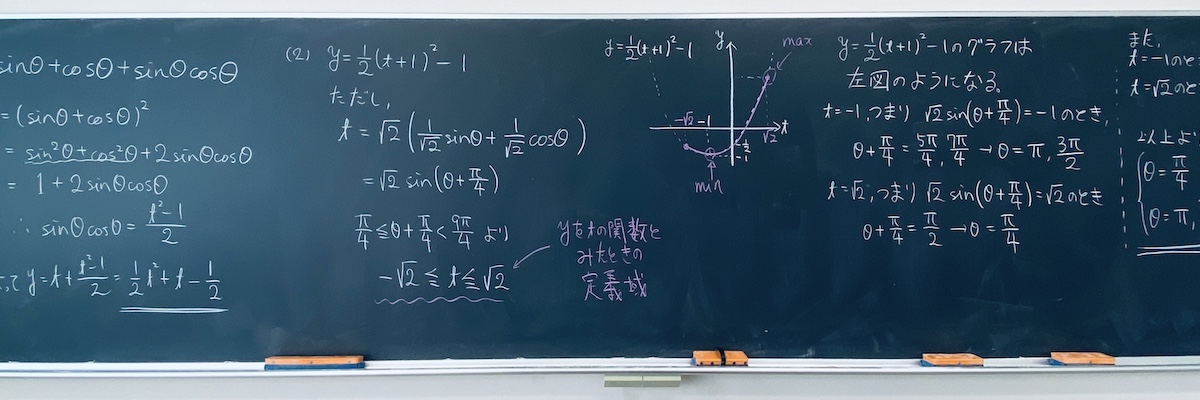 sinθ+cosθ+sinθcosθ
=(sinθ+cosθ)²
=sin²θ+cos²θ+2sinθcosθ
= 1+2sinθcosθ
∴ sinθcosθ=(t²-1)/2
て y=t+(t²-1)/2=1/2t²+t-1/2
(2) y=1/2(t+1)²-1
ただし,
t=√2(1/√2sinθ+1/√2cosθ)
=√2 sin(θ+π/4)
π/4≦θ+π/4<9π/4 より
-√2≦t≦√2
yをtの関数と
みたときの
定義域
y=1/2(t+1)²-1
y
max
-√2 -1
√2
t
-1/2
-1
min
y=1/2(t+1)²-1のグラフは
左図のようになる。
t=-1,つまり √2 sin(θ+π/4)=-1のとき,
θ+π/4=5π/4,7π/4→θ=π,3π/2
t=√2,つまり √2 sin(θ+π/4)=√2のとき
θ+π/4=π/2→θ=π/4
また,
t=-1のと
t=√2のと
以上よ
θ=π/4
θ=π,